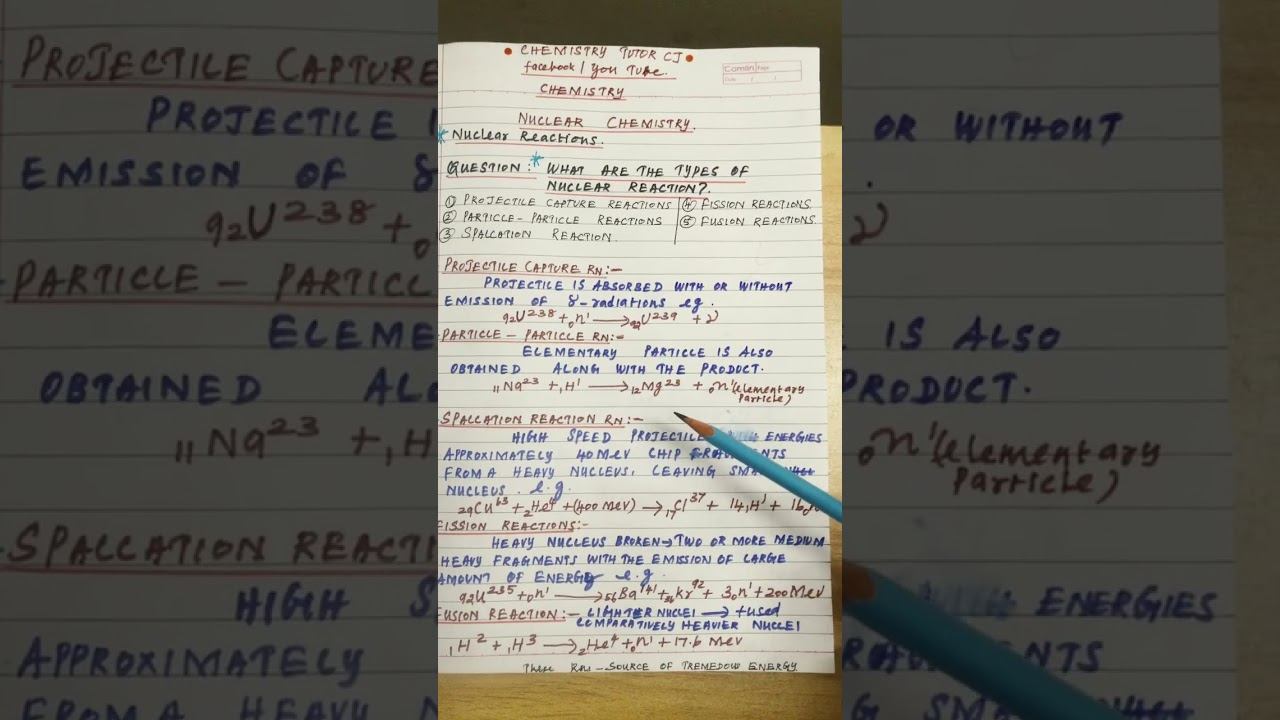 CHEMISTRY TUTOR CJ
facebook / You Tube.
CHEMISTRY
NUCLEAR CHEMISTRY.
* Nuclear Reactions.
QUESTION :* WHAT ARE THE TYPES OF
NUCLEAR REACTION?.
① PROJECTILE CAPTURE REACTIONS ④ FISSION REACTIONS
② PARTICLE - PARTICLE REACTIONS ⑤ FUSION REACTIONS.
③ SPALLATION REACTION.
PROJECTILE CAPTURE RN:-
PROJECTILE IS ABSORBED WITH OR WITHOUT
EMISSION OF γ-radiations eg.
₉₂U²³⁸ + ₀n¹ → ₉₂U²³⁹ + γ
PARTICLE - PARTICLE RN:-
ELEMENTARY PARTICLE IS ALSO
OBTAINED ALONG WITH THE PRODUCT.
₁₁Na²³ + ₁H¹ → ₁₂Mg²³ + ₀n¹ (elementary
Particle)
SPALLATION REACTION RN:-
HIGH SPEED PROJECTILE ENERGIES
APPROXIMATELY 40 MeV CHIP
FROM A HEAVY NUCLEUS, LEAVING
NUCLEUS. e.g.
₂₉Cu⁶³ + ₂He⁴ + (400 MeV) → ₁₇Cl³⁷ + 14 ₁H¹ + 16
FISSION REACTIONS:-
HEAVY NUCLEUS BROKEN → TWO OR MORE MEDIUM
HEAVY FRAGMENTS WITH THE EMISSION OF LARGE
AMOUNT OF ENERGY e.g.
₉₂U²³⁵ + ₀n¹ → ₅₆Ba¹⁴¹ + ₃₆Kr⁹² + 3₀n¹ + 200 MeV
FUSION REACTION:- LIGHTER NUCLEI → fused
COMPARATIVELY HEAVIER NUCLEI
₁H² + ₁H³ → ₂He⁴ + ₀n¹ + 17.6 MeV
These Rns - SOURCE OF TREMEDOUS ENERGY